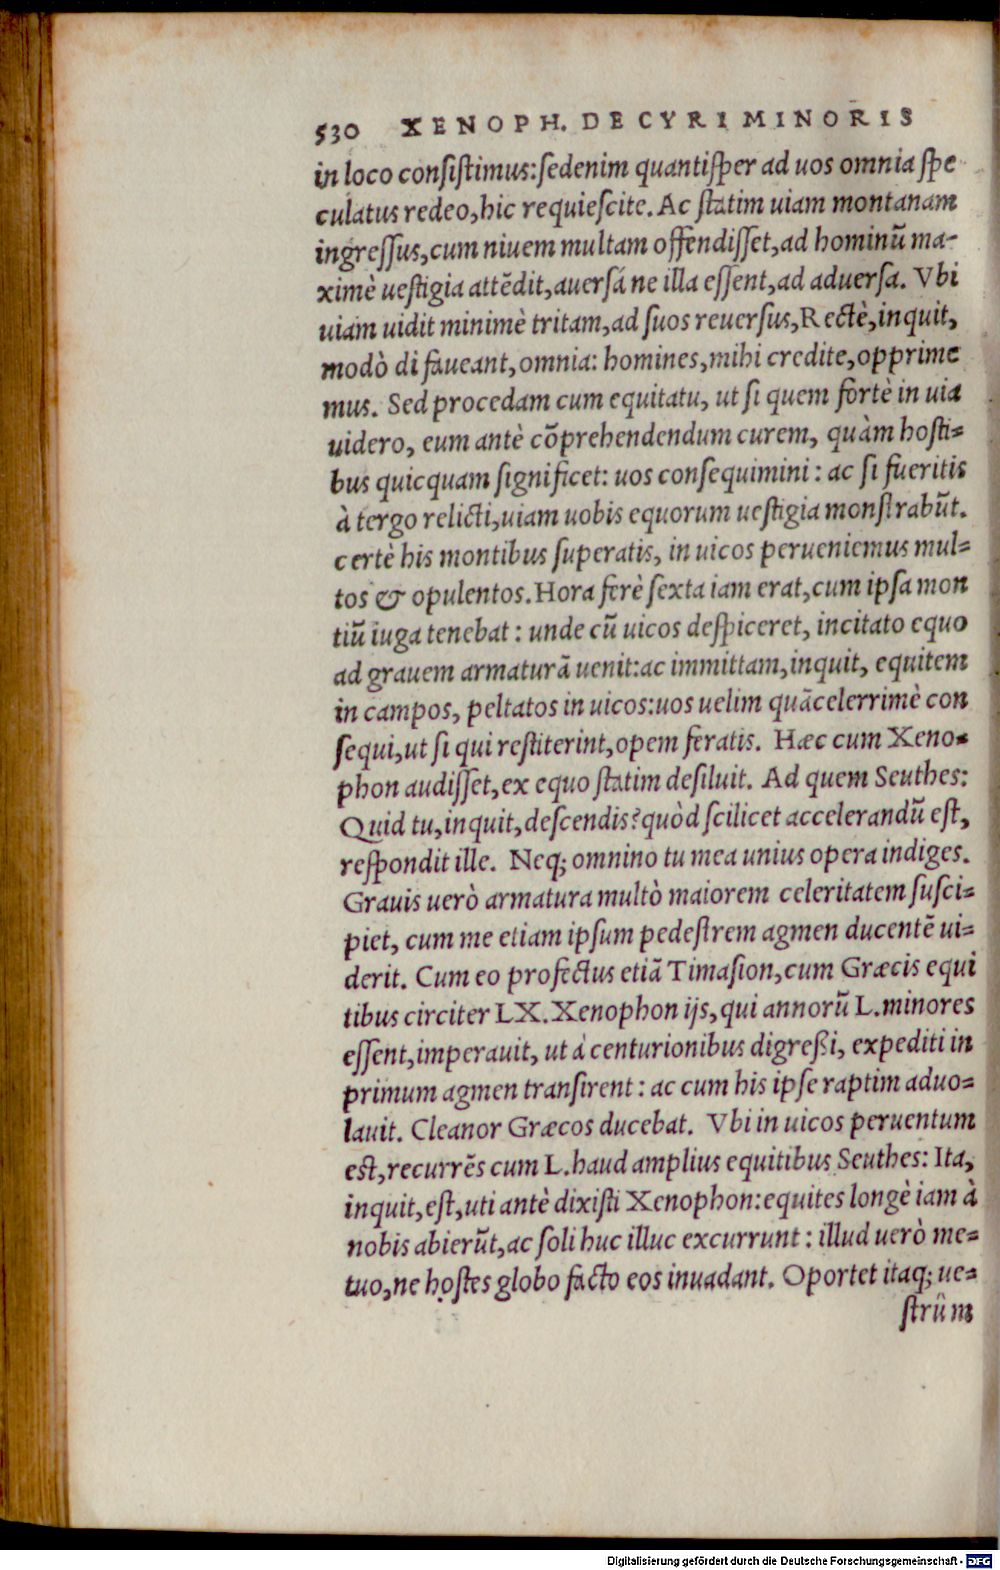 530 XENOPH. DE CYRI MINORIS
in loco consistimus: sedenim quantisper ad uos omnia spe
culatus redeo, hic requiescite. Ac statim uiam montanam
ingressus, cum niuem multam offendisset, ad hominū ma-
ximè uestigia attēdit, auersá ne illa essent, ad aduersa. Vbi
uiam uidit minimè tritam, ad suos reuersus, Rectè, inquit,
modò di faueant, omnia: homines, mihi credite, opprime
mus. Sed procedam cum equitatu, ut si quem fortè in uia
uidero, eum antè cōprehendendum curem, quàm hosti-
bus quicquam significet: uos consequimini: ac si fueritis
à tergo relicti, uiam uobis equorum uestigia monstrabūt.
certè his montibus superatis, in uicos perueniemus mul-
tos & opulentos. Hora ferè sexta iam erat, cum ipsa mon
tiū iuga tenebat: unde cū uicos despiceret, incitato equo
ad grauem armaturā uenit: ac immittam, inquit, equitem
in campos, peltatos in uicos: uos uelim quācelerrimè con
sequi, ut si qui restiterint, opem feratis. Hæc cum Xeno-
phon audisset, ex equo statim desiluit. Ad quem Seuthes:
Quid tu, inquit, descendis? quòd scilicet accelerandū est,
respondit ille. Neq; omnino tu mea unius opera indiges.
Grauis uerò armatura multò maiorem celeritatem susci-
piet, cum me etiam ipsum pedestrem agmen ducentē ui-
derit. Cum eo profectus etiā Timasion, cum Græcis equi
tibus circiter LX. Xenophon ijs, qui annorū L. minores
essent, imperauit, ut á centurionibus digreßi, expediti in
primum agmen transirent: ac cum his ipse raptim aduo-
lauit. Cleanor Græcos ducebat. Vbi in uicos peruentum
est, recurrēs cum L. haud amplius equitibus Seuthes: Ita,
inquit, est, uti antè dixisti Xenophon: equites longè iam à
nobis abierūt, ac soli huc illuc excurrunt: illud uerò me-
tuo, ne hostes globo facto eos inuadant. Oportet itaq; ue-
strûm
Digitalisierung gefördert durch die Deutsche Forschungsgemeinschaft - DFG